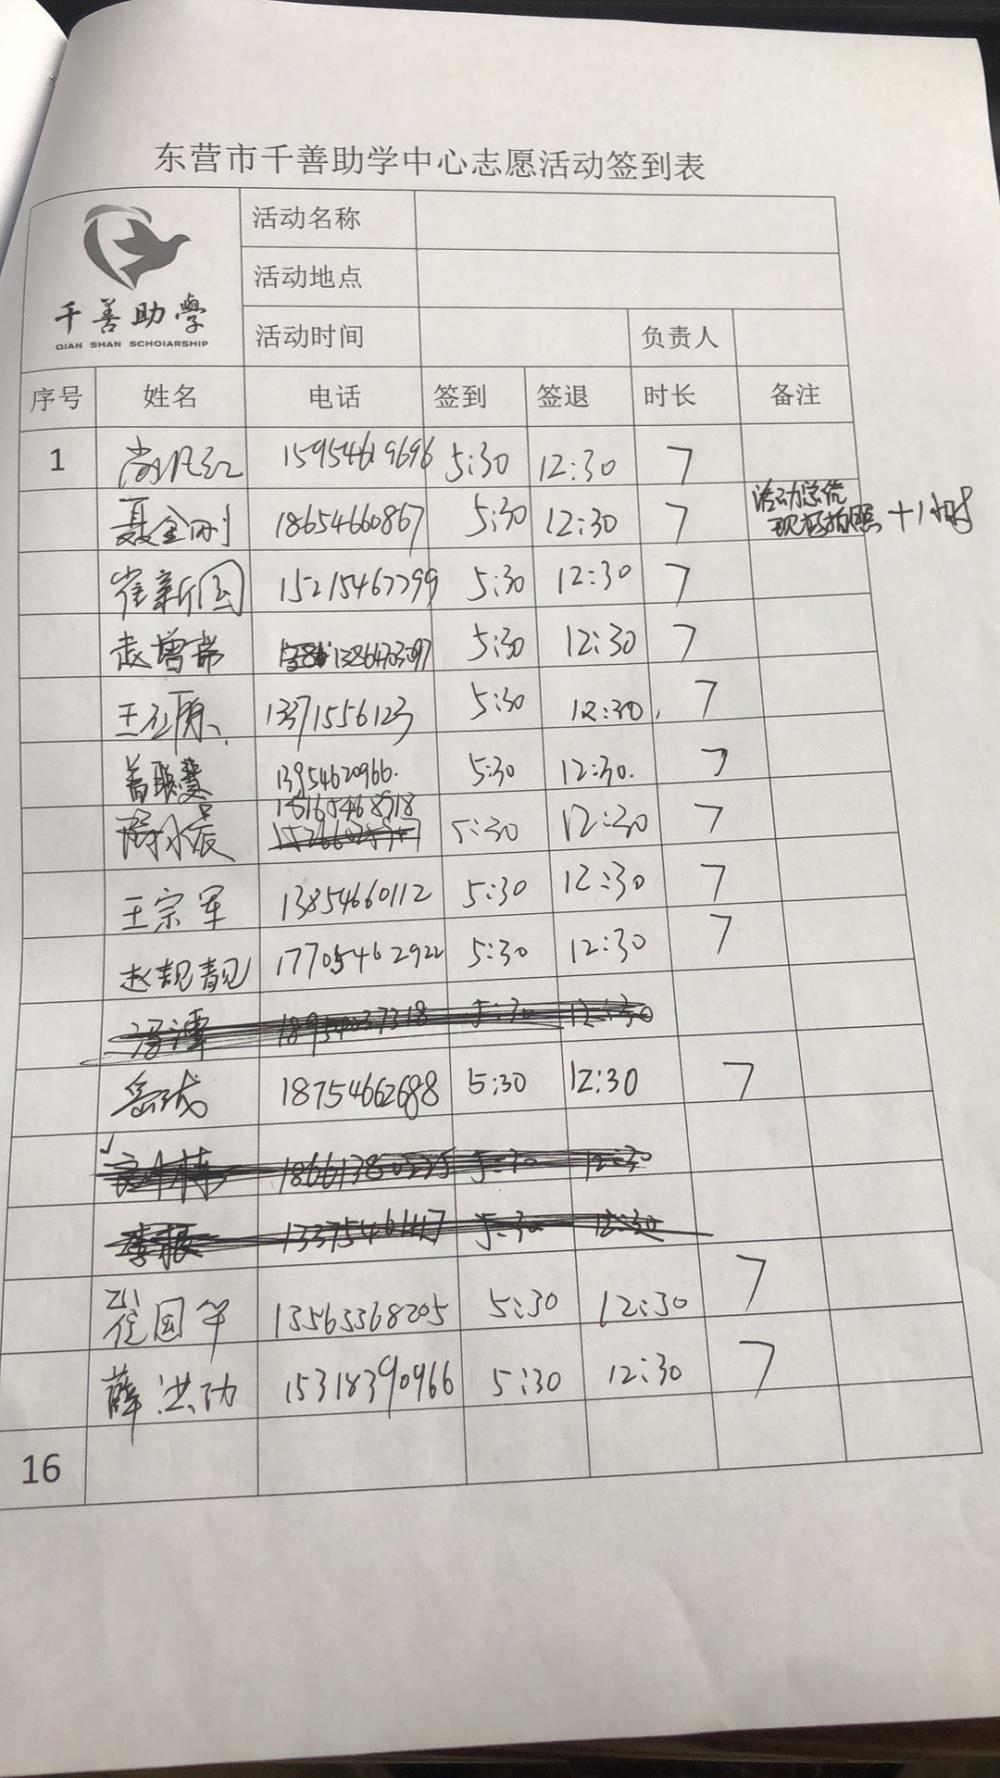 东营市千善助学中心志愿活动签到表
千善助學
QIAN SHAN SCHOIARSHIP
活动名称
活动地点
活动时间 负责人
序号 姓名 电话 签到 签退 时长 备注
1 15954619696 5:30 12:30 7
聂金刚 18654660867 5:30 12:30 7 活动总结 现场拍照 +1小时
崔新国 15215467799 5:30 12:30 7
赵增常 13864703097 5:30 12:30 7
王 13371556123 5:30 12:30 7
13954620966 5:30 12:30 7
15165468918 5:30 12:30 7
王宗军 13854660112 5:30 12:30 7
赵靓靓 17705462922 5:30 12:30 7
18954037318 5:30 12:30
岳 18754662688 5:30 12:30 7
5:30 12:30
李振 13375461147 5:30 12:30
国华 13563368205 5:30 12:30 7
薛洪功 15318390966 5:30 12:30 7
16